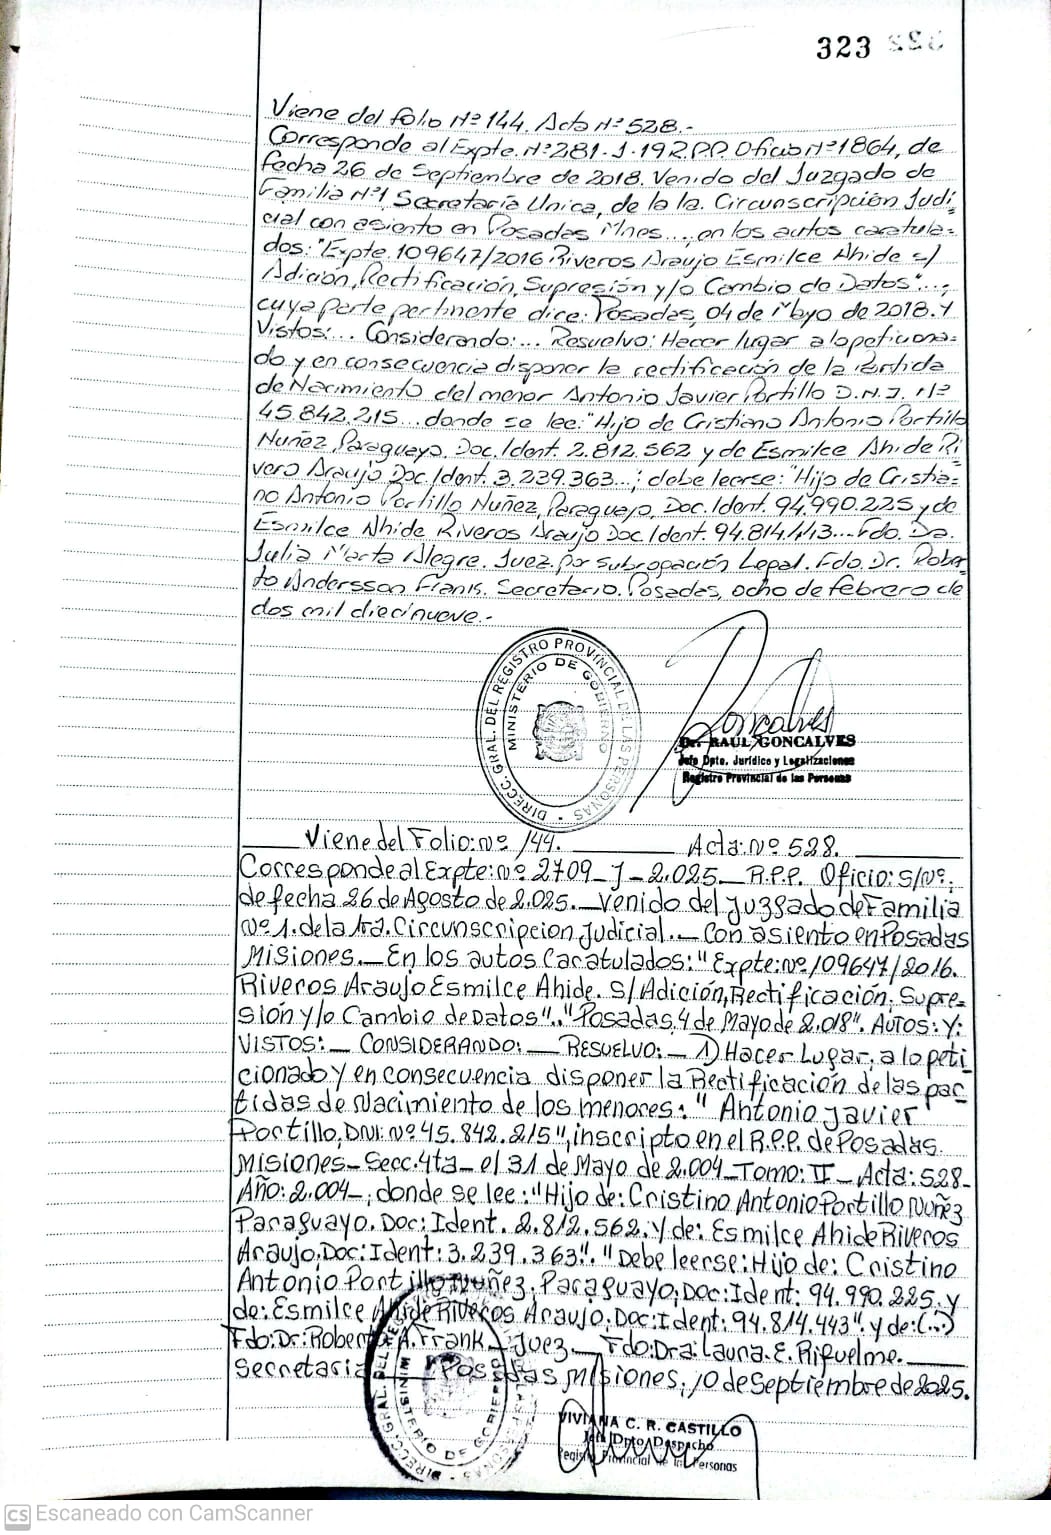 323
Viene del folio Nº 144. Acta Nº 528.-
Corresponde al Expte. Nº 281-J-19 R.P.P. Oficio Nº 1864, de
fecha 26 de Septiembre de 2018. Venido del Juzgado de
Familia Nº 1 Secretaría Unica, de la 1a. Circunscripción Judi-
cial con asiento en Posadas Mnes..., en los autos caratula-
dos: "Expte. 109647/2016 Riveros Araujo Esmilce Ahide s/
Adición, Rectificación, Supresión y/o Cambio de Datos"...,
cuya parte pertinente dice: Posadas, 04 de Mayo de 2018. Y
Vistos:... Considerando:... Resuelvo: Hacer lugar a lo peticiona-
do y en consecuencia disponer la rectificación de la Partida
de Nacimiento del menor Antonio Javier Portillo D.N.I. Nº
45.842.215... donde se lee: "Hijo de Cristiano Antonio Portillo
Nuñez, Paraguayo, Doc. Ident. 2.812.562 y de Esmilce Ahide Ri-
vero Araujo Doc. Ident. 3.239.363...; debe leerse: "Hijo de Cristia-
no Antonio Portillo Nuñez, Paraguayo, Doc. Ident. 94.990.225 y de
Esmilce Ahide Riveros Araujo Doc. Ident. 94.814.443... Fdo. Da.
Julia Marta Alegre. Juez por Subrogación Legal. Fdo. Dr. Rober-
to Andersson Frank. Secretario. Posadas, ocho de febrero de
dos mil diecinueve.-
DIRECC. GRAL. DEL REGISTRO PROVINCIAL DE LAS PERSONAS
MINISTERIO DE GOBIERNO
Goncalves
Dr. RAUL GONCALVES
Jefe Dpto. Jurídico y Legalizaciones
Registro Provincial de las Personas
Viene del Folio: Nº 144. Acta: Nº 528.
Corresponde al Expte: Nº 2709-J-2.025_ R.P.P. Oficio: S/Nº;
de fecha 26 de Agosto de 2.025._ Venido del Juzgado de Familia
Nº 1. de la 1ra. Circunscripcion Judicial._ Con asiento en Posadas
Misiones._ En los autos Caratulados: "Expte: Nº 109647/2016.
Riveros Araujo Esmilce Ahide. S/Adición, Rectificación, Supre-
sión y/o Cambio de Datos"."Posadas, 4 de Mayo de 2.018". Autos: Y:
VISTOS:_ CONSIDERANDO:_ RESUELVO:_ 1) Hacer Lugar, a lo peti
cionado y en consecuencia disponer la Rectificación de las par-
tidas de Nacimiento de los menores: "Antonio Javier
Portillo, DNI: Nº 45.842.215", inscripto en el R.P.P. de Posadas.
Misiones_ Secc. 4ta_ el 31 de Mayo de 2.004_ Tomo: II_ Acta: 528_
Año: 2.004_; donde se lee: "Hijo de: Cristino Antonio Portillo Nuñez
Paraguayo. Doc: Ident. 2.812.562. Y de: Esmilce Ahide Riveros
Araujo; Doc: Ident: 3.239.363". "Debe leerse: Hijo de: Cristino
Antonio Portillo Nuñez; Paraguayo; Doc: Ident: 94.990.225. y
de: Esmilce Ahide Riveros Araujo; Doc: Ident: 94.814.443". y de: (...)
Fdo: Dr: Roberto A. Frank_ Juez_ Fdo: Dra: Laura. E. Riquelme.
Secretaria_ Posadas Misiones, 10 de Septiembre de 2025.
DIRECC. GRAL. DEL REGISTRO PROVINCIAL DE LAS PERSONAS
MINISTERIO DE GOBIERNO
VIVIANA C. R. CASTILLO
Jefa Dpto Despacho
Registro Provincial de las Personas
CS Escaneado con CamScanner